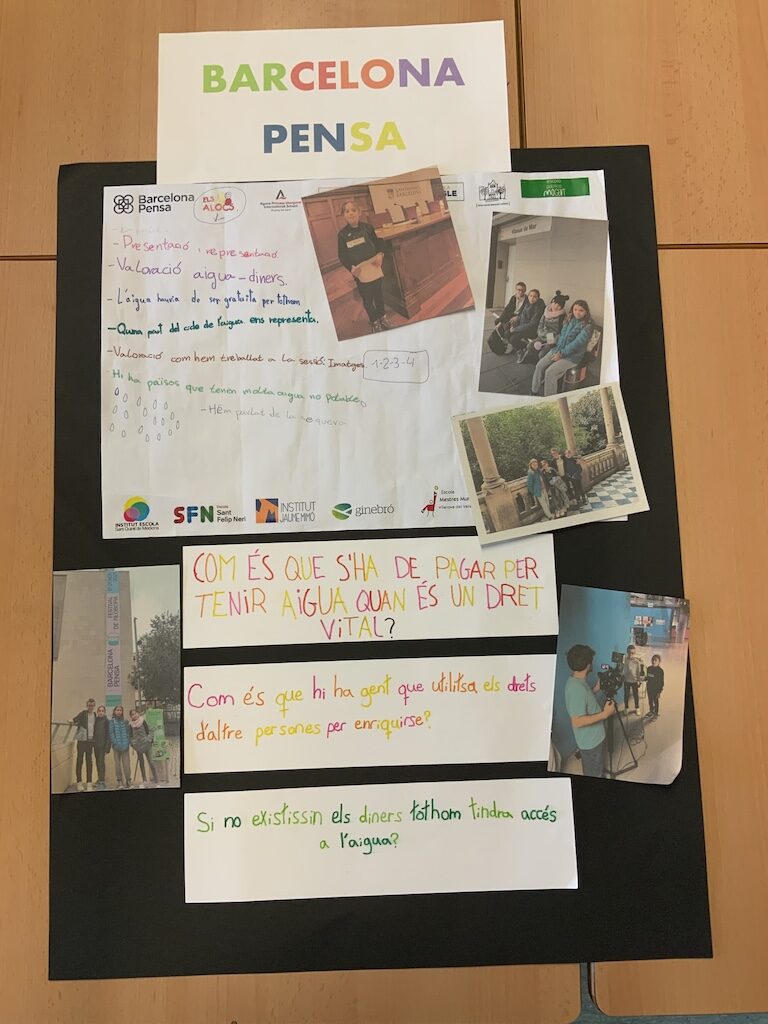 BARCELONA
PENSA
Barcelona
Pensa
ELS
ALOCS
MOZART
- Presentació i representació
- Valoració aigua - diners.
- L'aigua hauria de ser gratuïta per tothom
- Quina part del cicle de l'aigua ens representa.
- Valoració com hem treballat a la sessió: Imatges 1-2-3-4
Hi ha països que tenen molta aigua no potable
- Hem parlat de la sequera
Platja de Mar
INSTITUT ESCOLA
Sant Quirze de Mediona
SFN Escola
Sant
Felip Neri
INSTITUT
JAUME MIMÓ
ginebró
Escola
Mestres Mun
COM ÉS QUE S'HA DE PAGAR PER
TENIR AIGUA QUAN ÉS UN DRET
VITAL?
Com és que hi ha gent que utilitsa els drets
d'altre persones per enriquirse?
Si no existissin els diners tothom tindra accés
a l'aigua?
FESTIVAL
DE FILOSOFIA
BARCELONA
PENSA